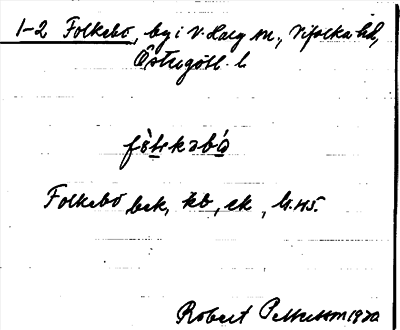 1-2 Folkebo, by i V. Harg sn., Vifolka hd,
Östergötl. l.
fòlkəbó
Folkebo bek, kb, ek,
Robert Pettersson 1930